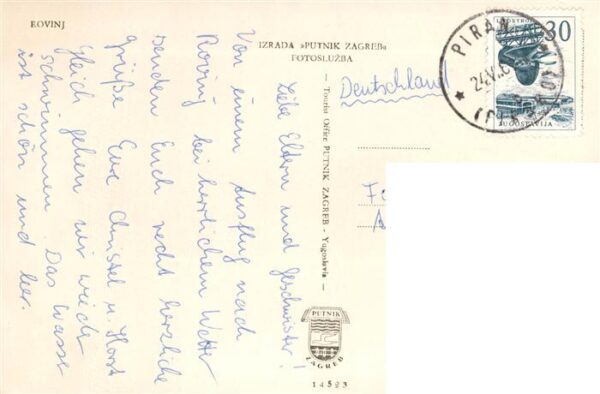 ROVINJ
IZRADA »PUTNIK ZAGREB«
FOTOSLUŽBA
Liebe Eltern und Geschwister!
Von einem Ausflug nach
Rovinj bei herrlichem Wetter
senden Euch recht herzliche
Grüße Eure Christel u. Horst
Gleich gehen wir wieder
schwimmen. Das Wasser
ist schön und
— Tourist Office PUTNIK ZAGREB - Yugoslavia —
Deutschland
PIRAN
30
JUGOSLAVIJA
PUTNIK
ZAGREB
14593